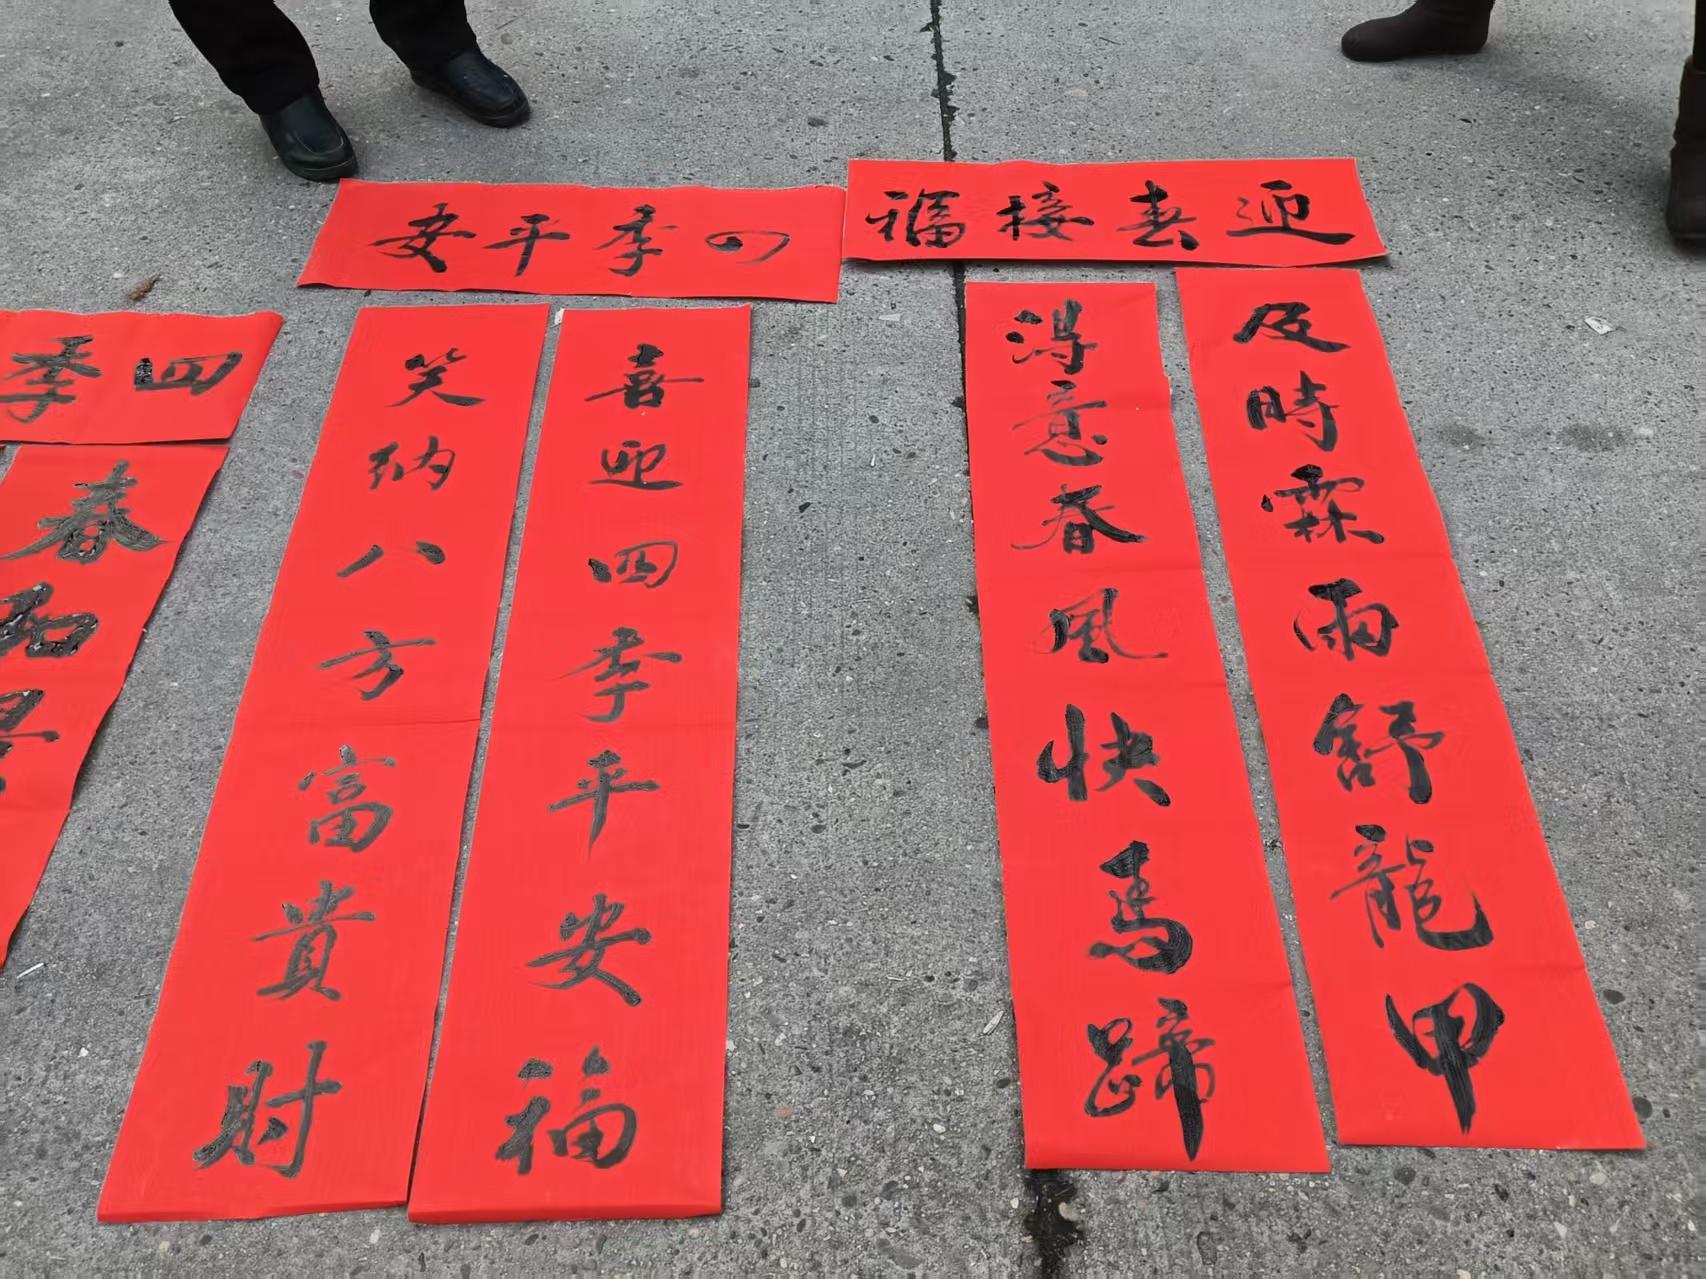 迎春接福
及時霖雨舒龍甲
得意春風快馬蹄
四季平安
喜迎四季平安福
笑納八方富貴財
四季
春和景